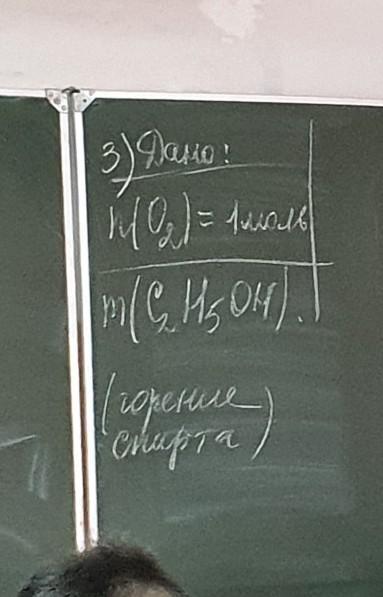 3) Дано:
n(O₂) = 1 моль
m(C₂H₅OH).
(горение
спирта)